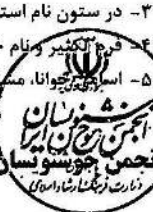 ۳- در ستون نام استا
۴- فرم
تکثیر و نام
۵- اسامی
خوانا، مش
انجمن خوشنویسان ایران
انجمن خوشنویسان
وزارت فرهنگ و ارشاد اسلامی